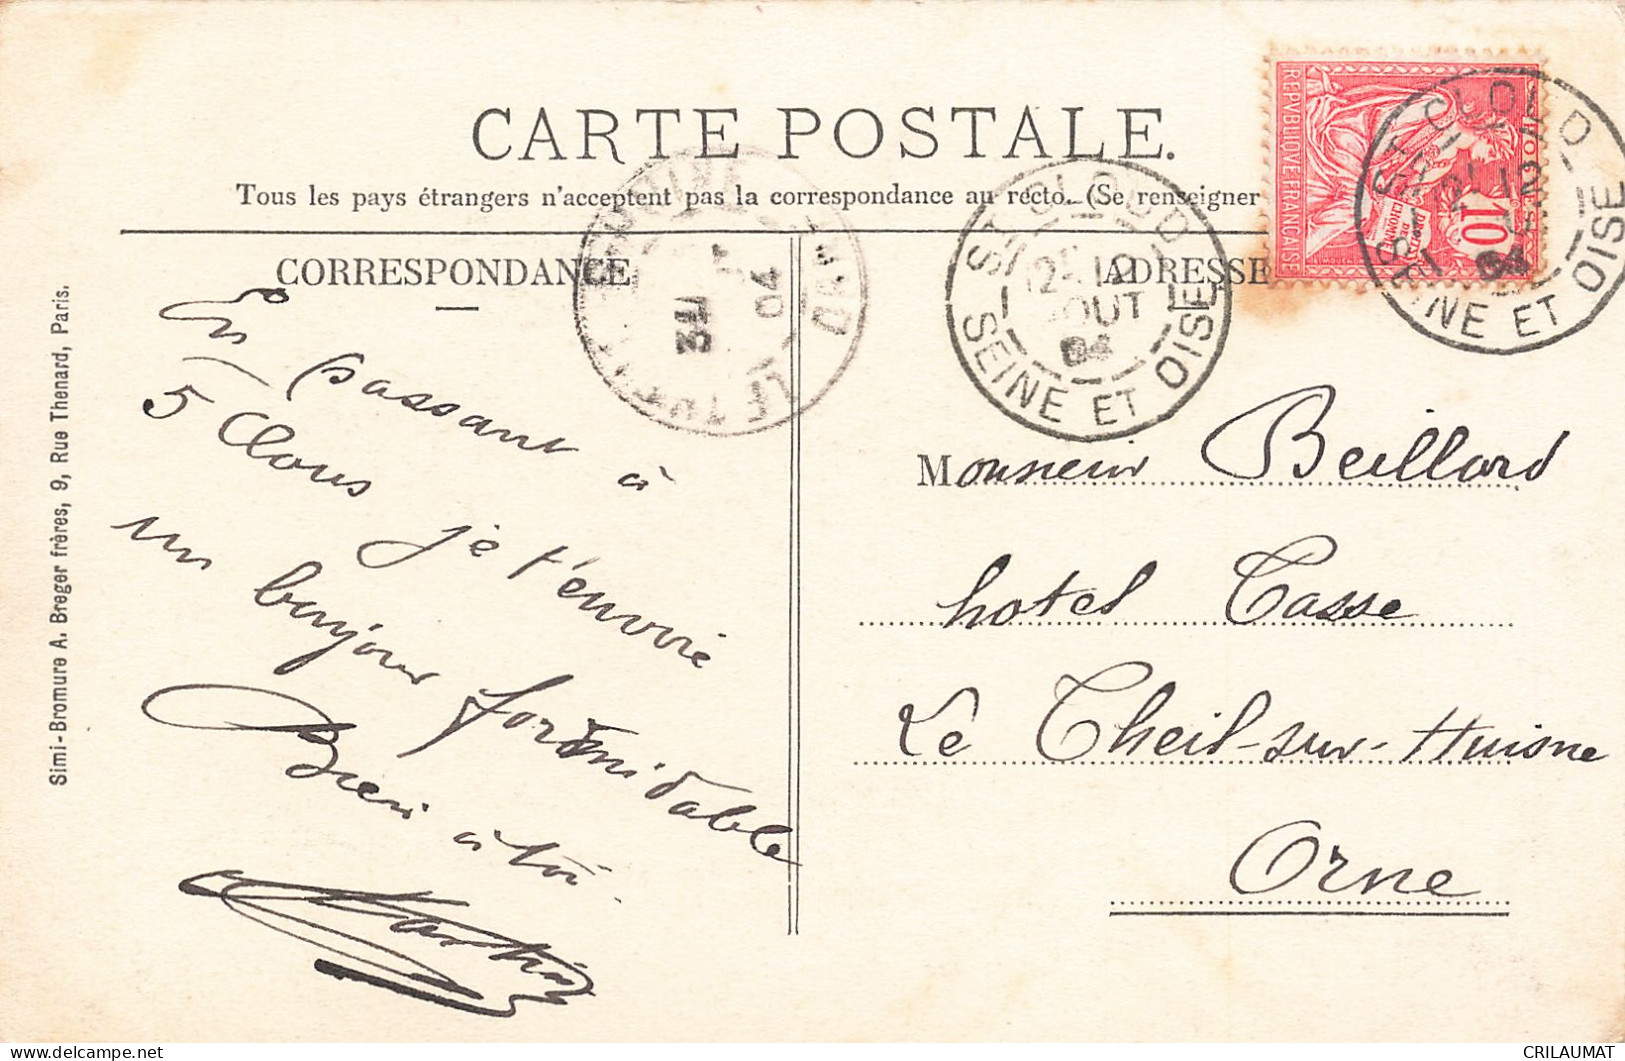 CARTE POSTALE.
Tous les pays étrangers n'acceptent pas la correspondance au recto. (Se renseigner
CORRESPONDANCE
ADRESSE
En passant à
5 Clous je t'envoie
un bonjour formidable
Bien à toi
Monsieur Beillard
hotel Tasse
Le Theil-sur-Huisne
Orne
Simi-Bromure A. Breger frères, 9, Rue Thenard, Paris.
REPVBLIQVE FRANÇAISE
POSTES
10
DROITS DE L'HOMME
ST CLOUD
12
AOUT
04
SEINE ET OISE
ST CLOUD
12
04
SEINE ET OISE
04
ORNE
CRILAUMAT